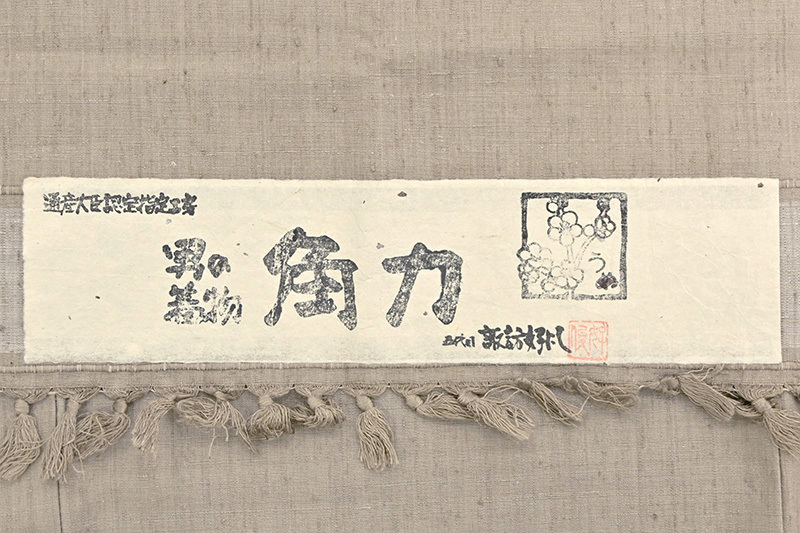 通産大臣認定指定工房
男の
着物
角力
うめ
五代目 諏訪好风
好俊